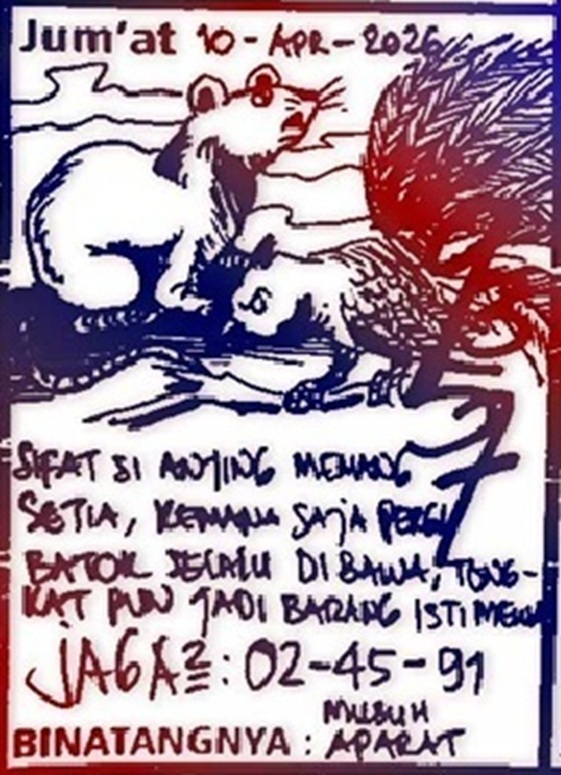 Jum'at 10 - APR - 2026
7
SIFAT SI ANJING MEMANG
SETIA, KEMANA SAJA PERGI
BATOK SELALU DI BAWA, TONG-
KAT PUN JADI BARANG ISTIMEWA
JAGA2 : 02-45-91
MUSUH
BINATANGNYA : APARAT